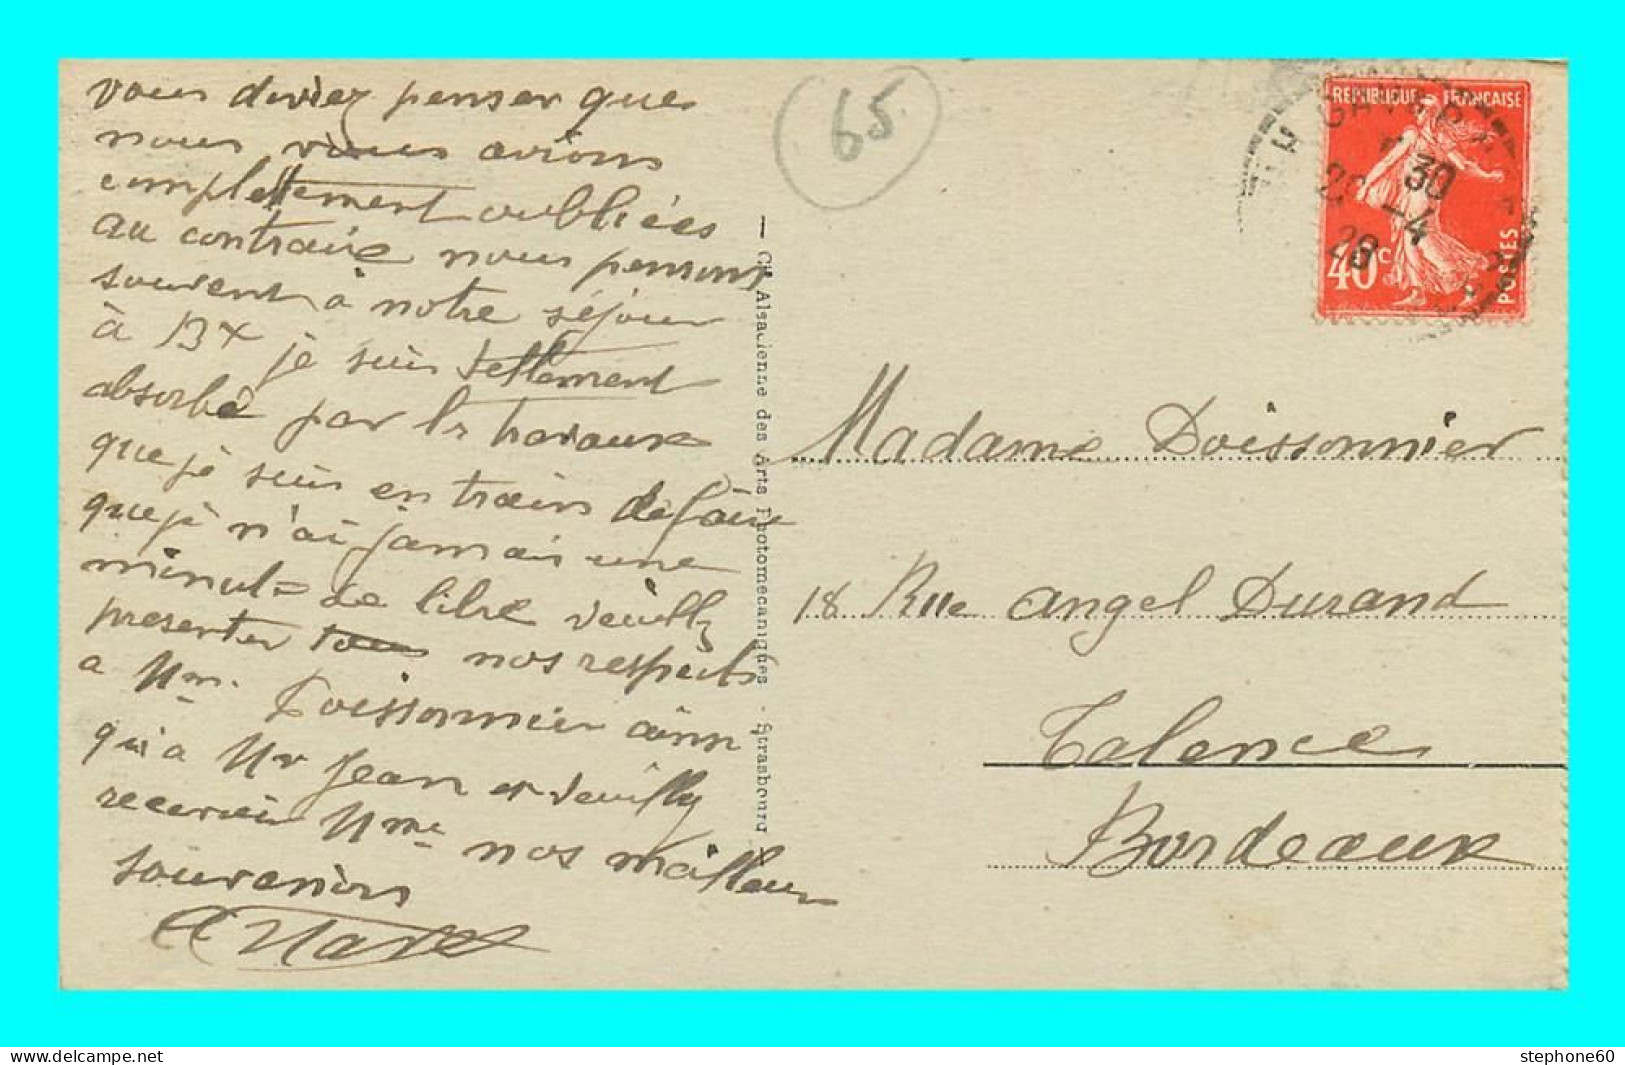 vous deviez penser que
nous vous avions
complettement oubliées
au contraire nous pensons
souvent à notre séjour
à Bx je suis tellement
absorbé par les travaux
que je suis en train de faire
que je n'ai jamais une
minute de libre veuillez
presenter nos respects
a Mm. Doissonnier ainsi
qu'a Mr Jean et veuillez
recevoir Mme nos meilleurs
souvenirs
65
Cie Alsacienne des Arts Photomécaniques - Strasbourg
REPUBLIQUE FRANÇAISE
POSTES
40c
30
-4
28
Madame Doissonnier
18 Rue Angel Durand
Talence
Bordeaux
stephone60